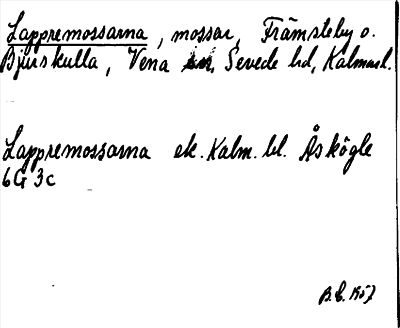 Lappremossarna, mossar, Främsteby o.
Bjurskulla, Vena sn, Sevede hd, Kalmar l.
Lappremossarna ek. Kalm. bl. Åskögle
6G 3c
B.E. 1957